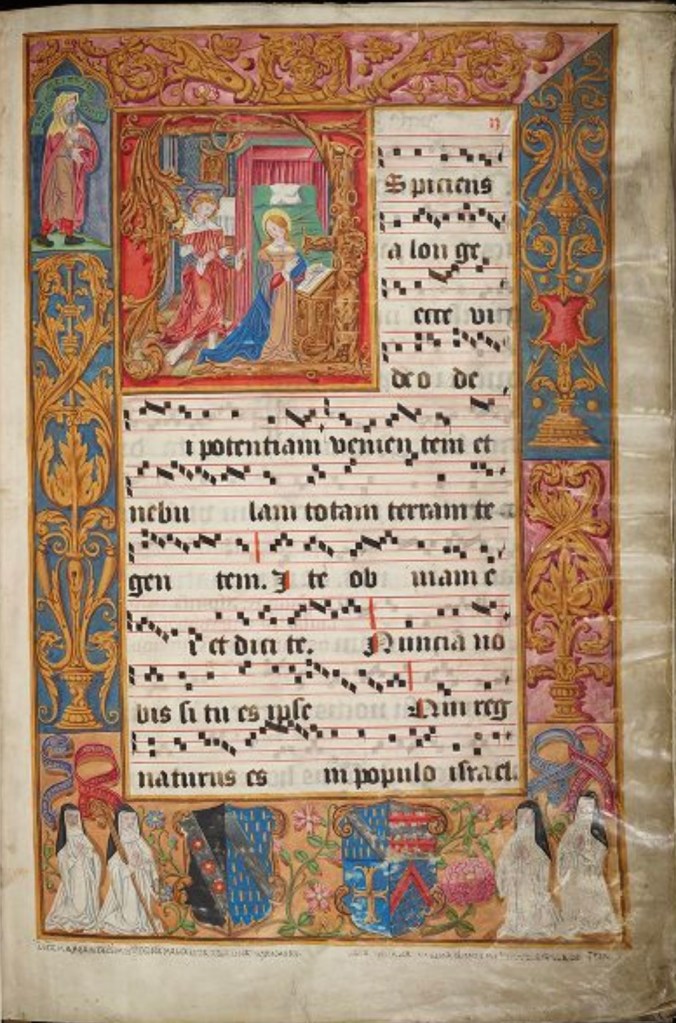 Spiciens
a lon ge,
ecce vi
deo de
i potentiam venien tem et
nebu lam totam terram te
gen tem. I te ob uiam e
i et dici te. Nuncia no
bis si tu es ipse Qui reg
naturus es in populo israel.